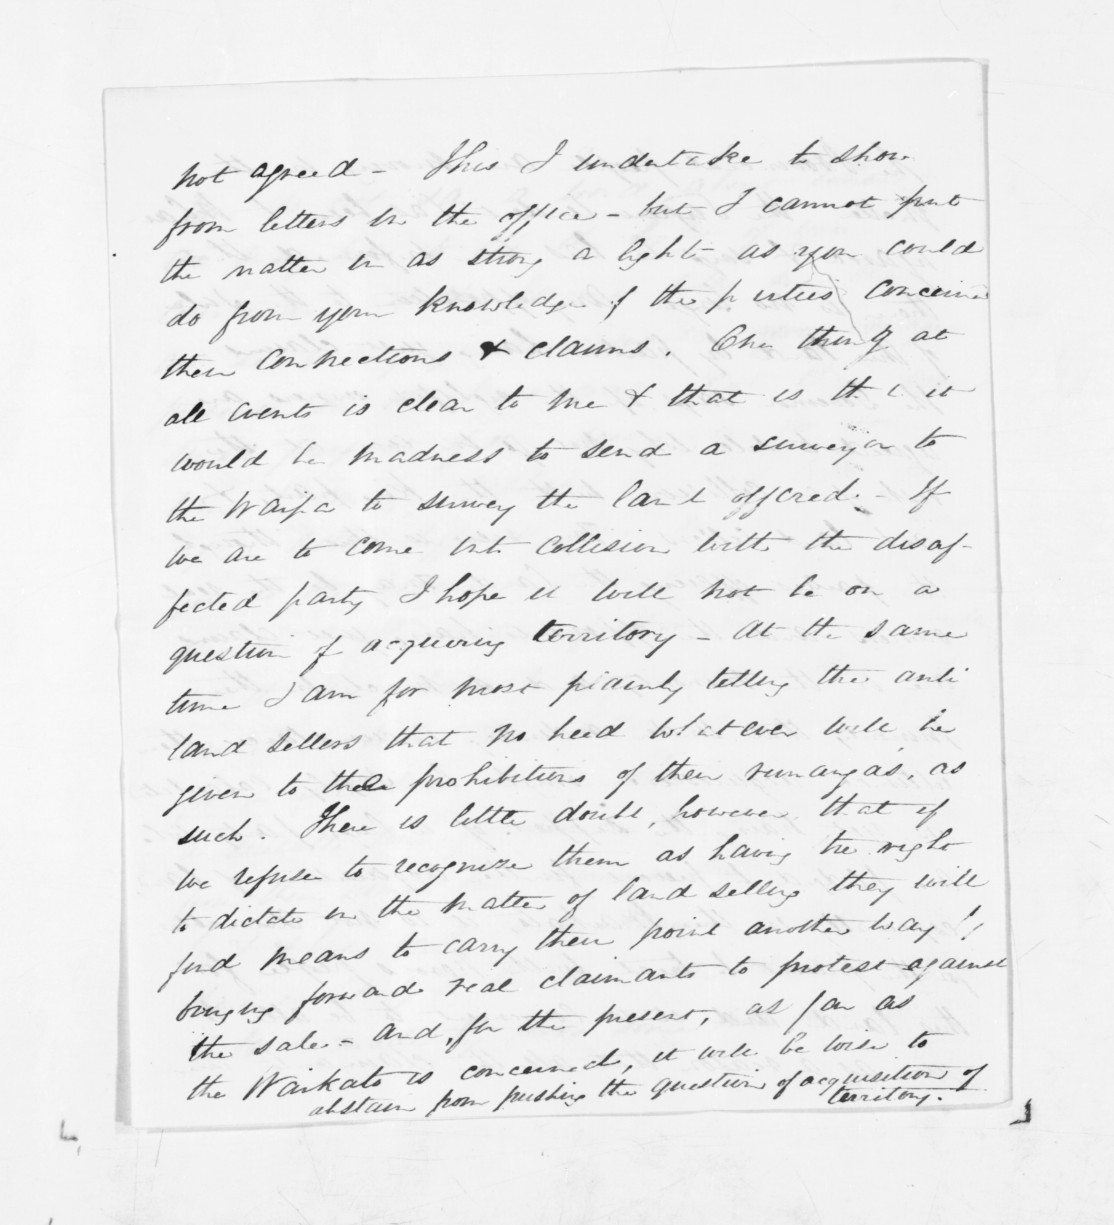 not agreed - This I undertake to show
from letters in the office - but I cannot put
the matter in as strong a light as you could
do from your knowledge of the parties concerned
their connections & claims. One thing at
all events is clear to me & that is that it
would be madness to send a surveyor to
the Waipa to survey the land offered. - If
we are to come into collision with the disaf-
fected party I hope it will not be on a
question of acquiring territory - At the same
time I am for most plainly telling the anti
land sellers that no heed whatever will be
given to the prohibitions of their runangas, as
such. There is little doubt, however that if
we refuse to recognize them as having the right
to dictate in the matter of land selling they will
find means to carry their point another way by
bringing forward real claimants to protest against
the sale - and, for the present, as far as
the Waikato is concerned, it will be wise to
abstain from pushing the question of acquisition of
territory.